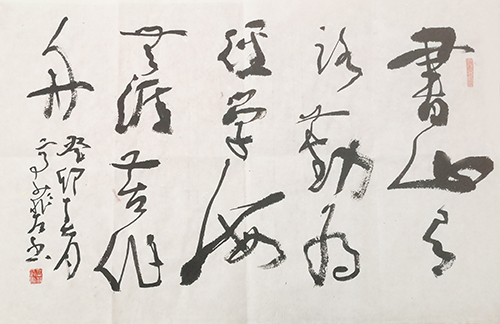 書山有
路勤為
徑學海
無涯苦作
舟
癸卯月
書